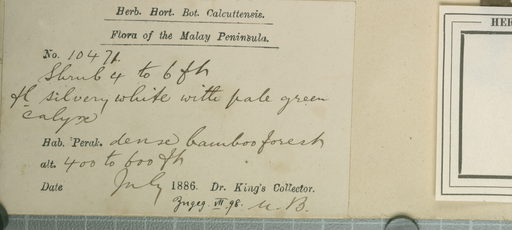 Herb. Hort. Bot. Calcuttensis.
Flora of the Malay Peninsula.
No. 10471.
Shrub 4 to 6 ft
fl silvery white with pale green
calyx
Hab. Perak. dense bamboo forest
alt. 400 to 600 ft
Date July 1886. Dr. King's Collector.
VII. 98. M. B.
HER